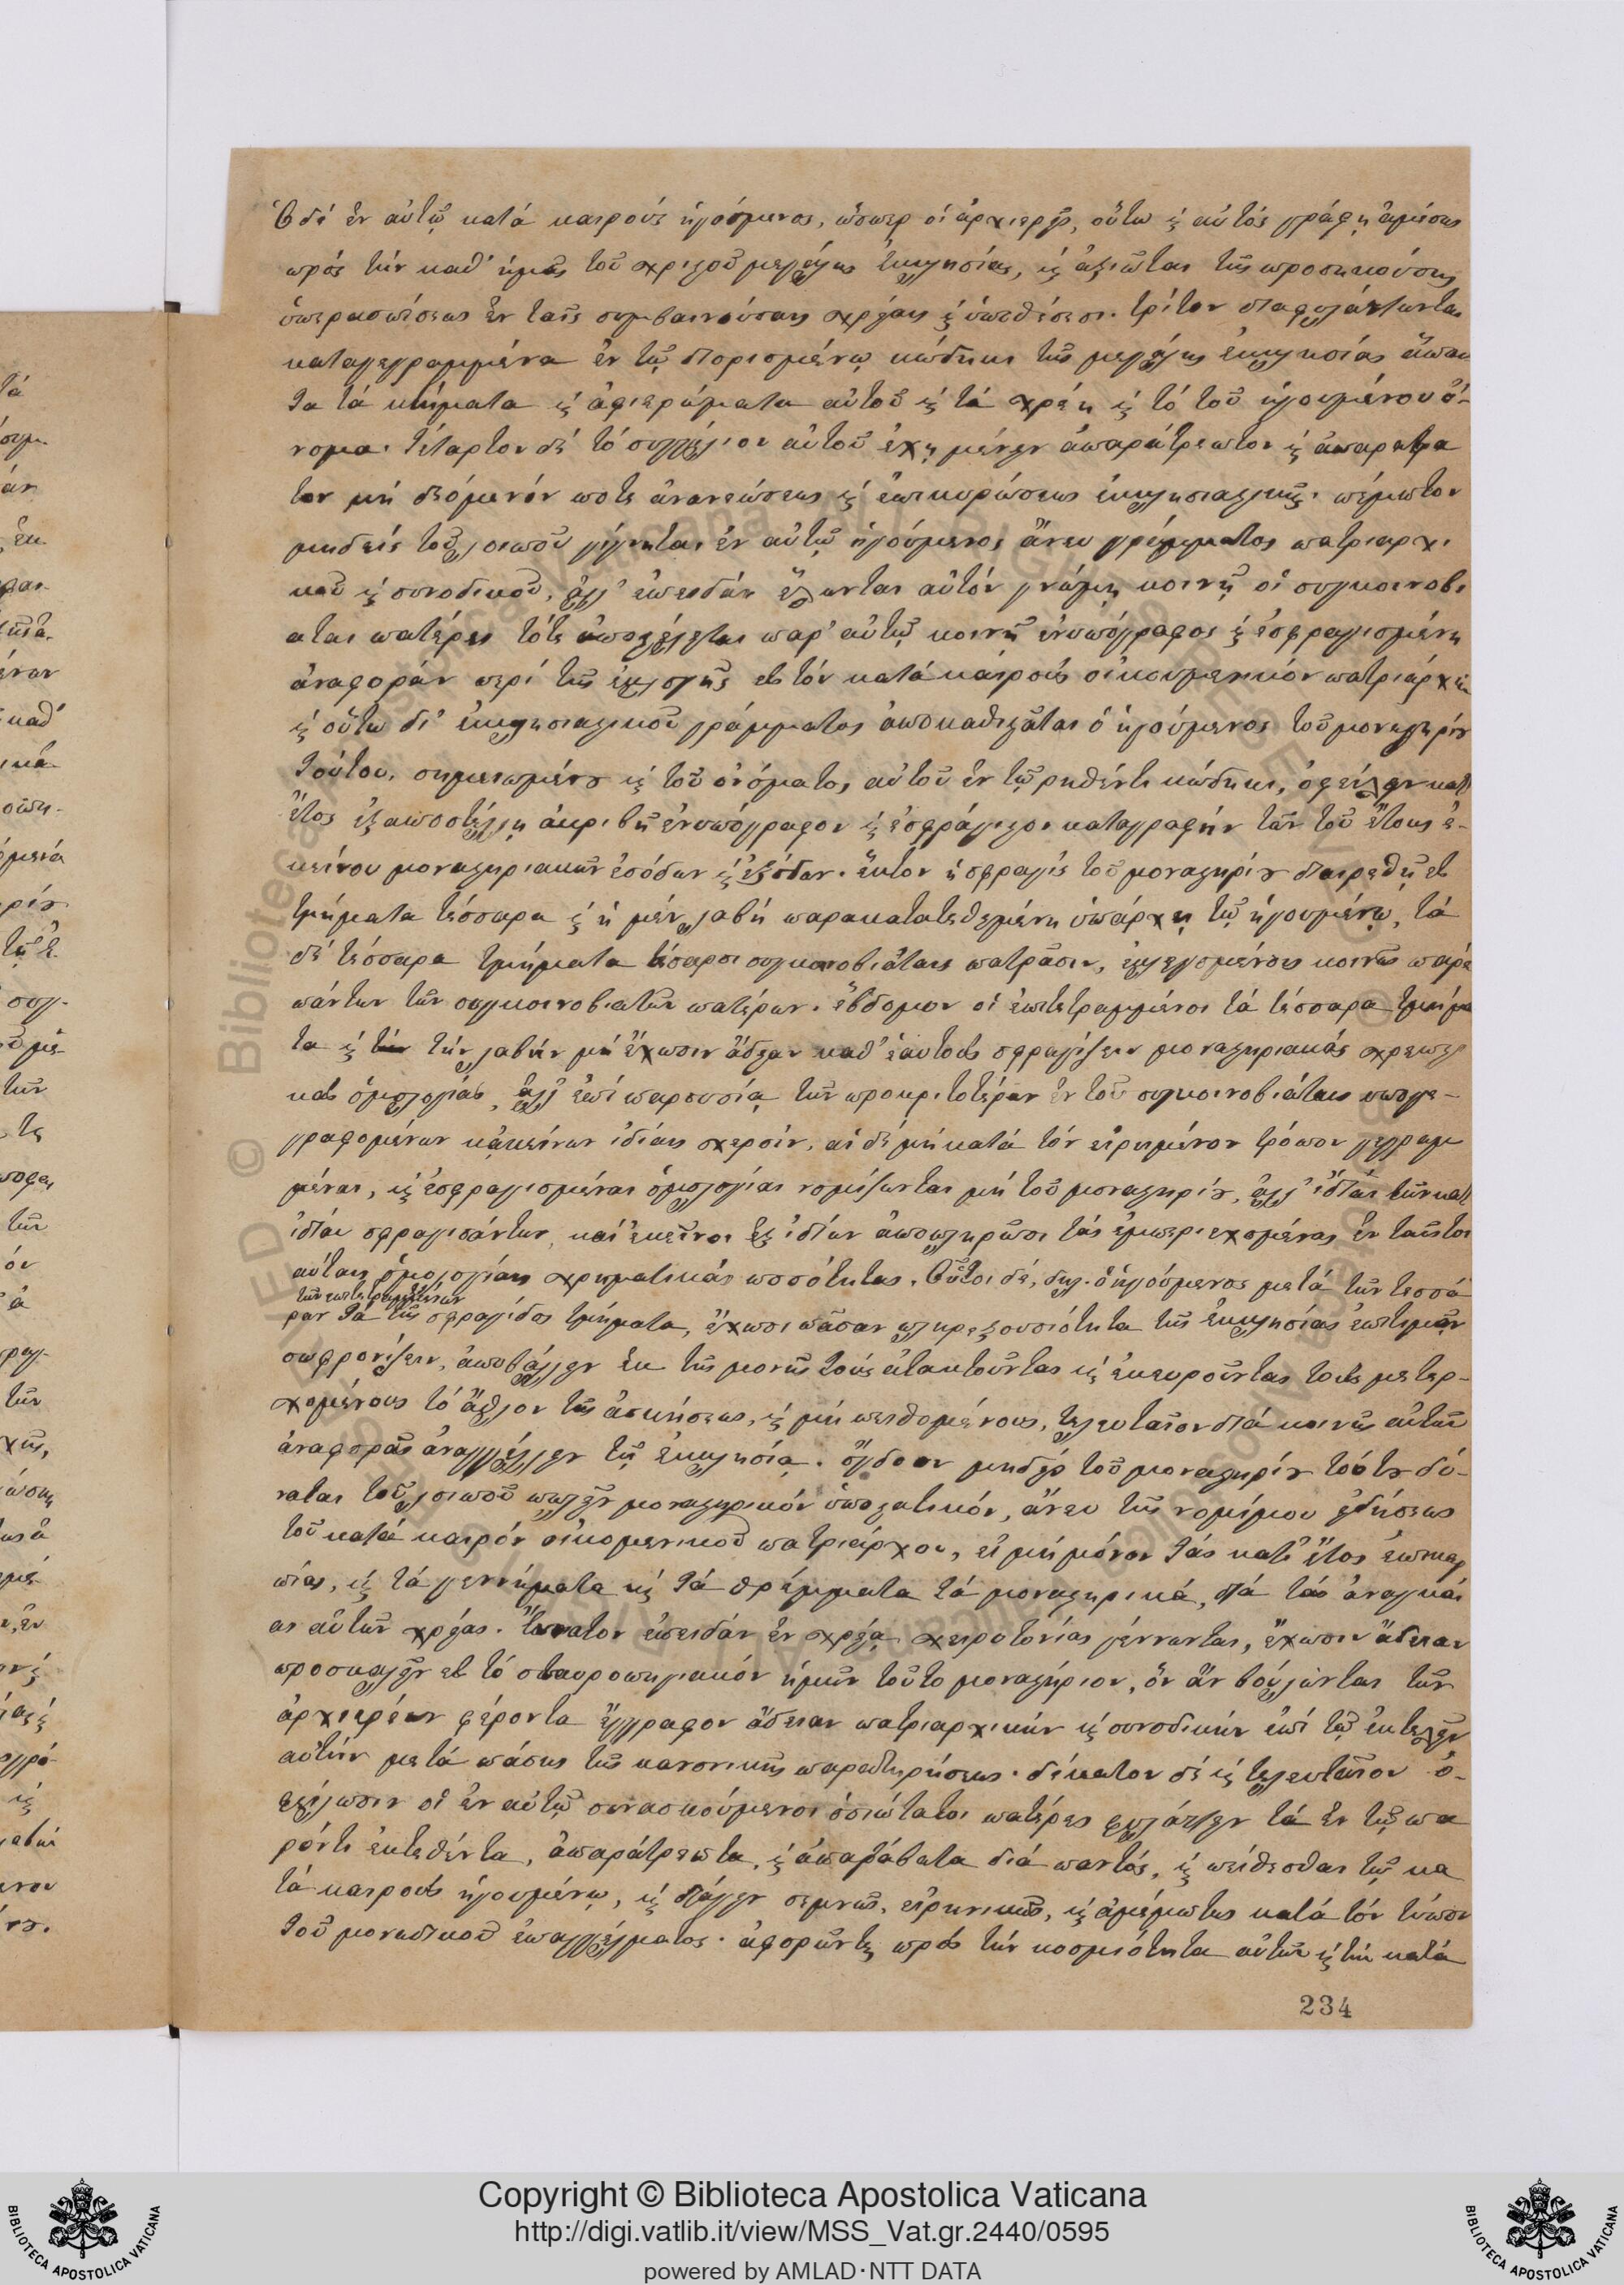 Ὁ δὲ ἐν αὐτῷ κατὰ καιροὺς ἡγούμενος, ὥσπερ οἱ ἀρχιερεῖς, οὕτω καὶ αὐτὸς γράφῃ ἀμέσως
πρὸς τὴν καθ' ἡμᾶς τοῦ χριστοῦ μεγάλης ἐκκλησίας, καὶ ἀξιῶται τῆς προσηκούσης
ὑπερασπίσεως ἐν ταῖς συμβαινούσαις χρείαις καὶ ὑποθέσεσι. τρίτον διαφυλάττωνται
καταγεγραμμένα ἐν τῷ διορισμένῳ κώδηκι τῆς μεγάλης ἐκκλησίας ἅπαν
τα τὰ κτήματα καὶ ἀφιερώματα αὐτοῦ καὶ τὰ χρέη καὶ τὸ τοῦ ἡγουμένου ὄ-
νομα. τέταρτον δὲ τὸ συγγίλιον αὐτοῦ ἔχῃ μένειν ἀπαράτρεπτον καὶ ἀπαρατρα
τον μὴ δεόμενόν ποτε ἀνανεώσεως καὶ ἐπικυρώσεως ἐκκλησιαστικῆς. πέμπτον
μηδεὶς τοῦ λοιποῦ γίγνηται ἐν αὐτῷ ἡγούμενος ἄνευ γράμματος πατριαρχι
κοῦ καὶ συνοδικοῦ, ἀλλ' ἐπειδὰν ἕλωνται αὐτὸν γνώμῃ κοινῇ οἱ συγκοινοβι
αται πατέρες τότε ἀποστέλλεται παρ' αὐτῷ κοινῇ ἐνυπόγραφος καὶ ἐσφραγισμένη
ἀναφορὰν περὶ τῆς ἐκλογῆς εἰς τὸν κατὰ καιροὺς οἰκουμενικὸν πατριάρχην
καὶ οὕτω δι' ἐκκλησιαστικοῦ γράμματος ἀποκαθιστᾶται ὁ ἡγούμενος τοῦ μοναστηρίου
τούτου, σημειωμένου καὶ τοῦ ὀνόματος αὐτοῦ ἐν τῷ ῥηθέντι κώδηκι, ὀφείλειν κατ'
ἔτος ἐξαποστέλλῃ ἀκριβῆ ἐνυπόγραφον καὶ ἐσφράγιστον καταγραφὴν τῶν τοῦ ἔτους ἐ-
κείνου μοναστηριακῶν ἐσόδων καὶ ἐξόδων. ἕκτον ἡ σφραγὶς τοῦ μοναστηρίου διαιρεθῇ εἰς
τμήματα τέσσαρα καὶ ἡ μὲν λαβὴ παρακατατεθειμένη ὑπάρχῃ τῷ ἡγουμένῳ, τὰ
δὲ τέσσαρα τμήματα τέσαρσι συγκοινοβιάταις πατράσιν, ἐκλεγομένοις κοινῶς παρὰ
πάντων τῶν συγκοινοβιατῶν πατέρων. ἕβδομον οἱ ἐπιτετραμμένοι τὰ τέσσαρα τμήμα
τα καὶ τὴν τὴν λαβὴν μὴ ἔχωσιν ἄδειαν καθ' ἑαυτοὺς σφραγίζειν μοναστηριακὰς χρεωστι
κὰς ὁμολογίας, ἀλλ' ἐπὶ παρουσίᾳ τῶν προκριτοτέρων ἐν τοῖς συγκοινοβιάταις ὑπογε-
γραφομένων κἀκείνων ἰδίαις χερσίν, αἱ δὲ μὴ κατὰ τὸν εἰρημένον τρόπον γεγραμ
μέναι, καὶ ἐσφραγισμέναι ὁμολογίαι νομίζωνται μὴ τοῦ μοναστηρίου, ἀλλ' ἰδίαι τῶν κατ'
ἰδίαν σφραγισάντων, καὶ ἐκεῖνοι ἐξ ἰδίων ἀποπληρῶσι τὰς ἐμπεριεχομένας ἐν ταῖς τοι
αύταις ὁμολογίαις χρηματικὰς ποσότητας. Οὗτοι δὲ, δηλ. ὁ ἡγούμενος μετὰ τῶν τεσσά
τῶν ἐπιτετραμμένων
ρων τὰ τῆς σφραγίδος τμήματα, ἔχωσι πᾶσαν πληρεξουσιότητα τῆς ἐκκλησίας ἐπιτιμᾷν
σωφρονίζειν, ἀποβάλλειν ἐκ τῆς μονῆς τοὺς ἀτακτοῦντας καὶ ἐνευροῦντας τοὺς μετερ-
χομένους τὸ ἆθλον τῆς ἀσκήσεως, καὶ μὴ πειθομένους, τελευταῖον διὰ κοινῆς αὐτῶν
ἀναφορᾶς ἀναγγέλλειν τῇ ἐκκλησίᾳ. ὄγδοον μηδεὶς τοῦ μοναστηρίου τούτου δύ-
ναται τοῦ λοιποῦ πωλεῖν μοναστηρικὸν ὑποστατικόν, ἄνευ τῆς νομίμου εἰδήσεως
τοῦ κατὰ καιρὸν οἰκομενικοῦ πατριάρχου, εἰ μὴ μόνον τὰς κατ' ἔτος ἐπικαρ
πίας, καὶ τὰ γεννήματα καὶ τὰ θρέμματα τὰ μοναστηρικά, διὰ τὰς ἀναγκαί
ας αὐτῶν χρείας. ἔννατον ἐπειδὰν ἐν χρείᾳ χειροτονίας γένωνται, ἔχωσιν ἄδειαν
προσκαλεῖν εἰς τὸ σταυροπηγιακὸν ἡμῶν τοῦτο μοναστήριον, ὃν ἂν βούλωνται τῶν
ἀρχιερέων φέροντα ἔγγραφον ἄδειαν πατριαρχικὴν καὶ συνοδικὴν ἐπὶ τῷ ἐκτελεῖν
αὐτὴν μετὰ πάσης τῆς κανονικῆς παρατηρήσεως. δέκατον δὲ καὶ τελευταῖον ὀ-
φείλωσιν οἱ ἐν αὐτῷ συνασκούμενοι ὁσιώτατοι πατέρες φυλάττειν τὰ ἐν τῷ πα
ρόντι ἐκτεθέντα, ἀπαράτρεπτα, καὶ ἀπαράβατα διὰ παντός, καὶ πείθεσθαι τῷ κα
τὰ καιροὺς ἡγουμένῳ, καὶ διάγειν σεμνῶς, εἰρηνικῶς, καὶ ἀμέμπτως κατὰ τὸν τύπον
τοῦ μοναδικοῦ ἐπαγγέλματος. ἀφορῶντες πρὸς τὴν κοσμιότητα αὐτῶν καὶ τὴν κατὰ
234
Copyright © Biblioteca Apostolica Vaticana
http://digi.vatlib.it/view/MSS_Vat.gr.2440/0595
powered by AMLAD·NTT DATA
BIBLIOTECA APOSTOLICA VATICANA
BIBLIOTECA APOSTOLICA VATICANA